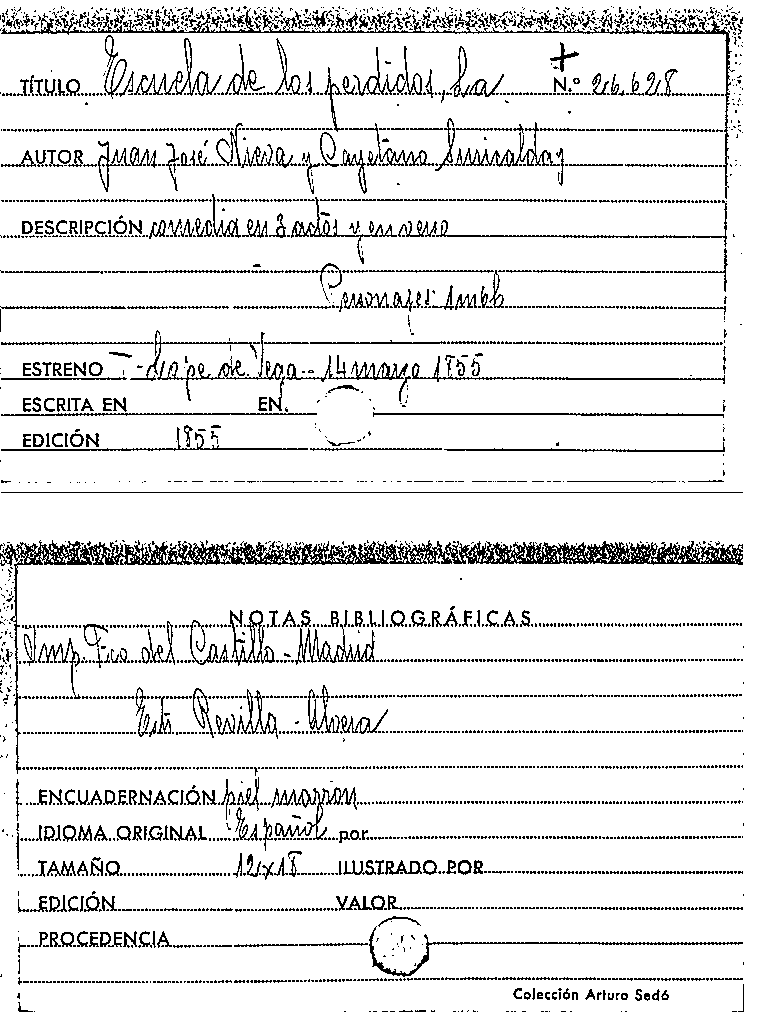 TÍTULO Escuela de los perdidos, La N.º 26.628
AUTOR Juan José Nieva y Cayetano Suricalday
DESCRIPCIÓN comedia en 3 actos y en verso
Personajes
ESTRENO T- Lope de Vega - 14 marzo 1855
ESCRITA EN EN.
EDICIÓN 1855
NOTAS BIBLIOGRÁFICAS
Imp. Fco del Castillo - Madrid
Revilla - Alvera
ENCUADERNACIÓN piel marron
IDIOMA ORIGINAL Español por
TAMAÑO 12x18 ILUSTRADO POR
EDICIÓN VALOR
PROCEDENCIA
Colección Arturo Sedó